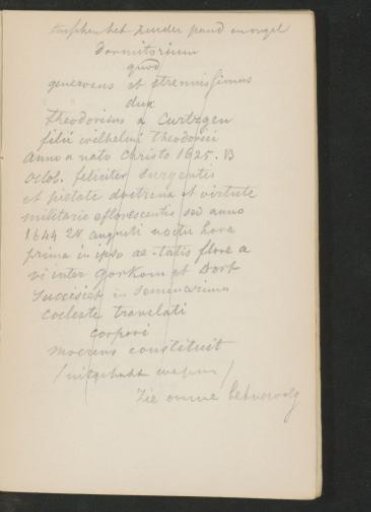 tusschen het zuider pand en orgel
Dormitorium
quod
generosus et strennissimus
dux
Theodoricus a Curtzgen
filii wilhelmi Theodorici
Anno a nato Christo 1625. 13
Octob. feliciter surgentis
et pietate doctrina et virtute
militaris eflorescentis sed anno
1644 28 augusti noctis hora
prima in ipso ae-tatis flore a
vi inter Gorkom et Dort
succisi et in
coeleste translati
corpori
moerens constituit
Zie omme